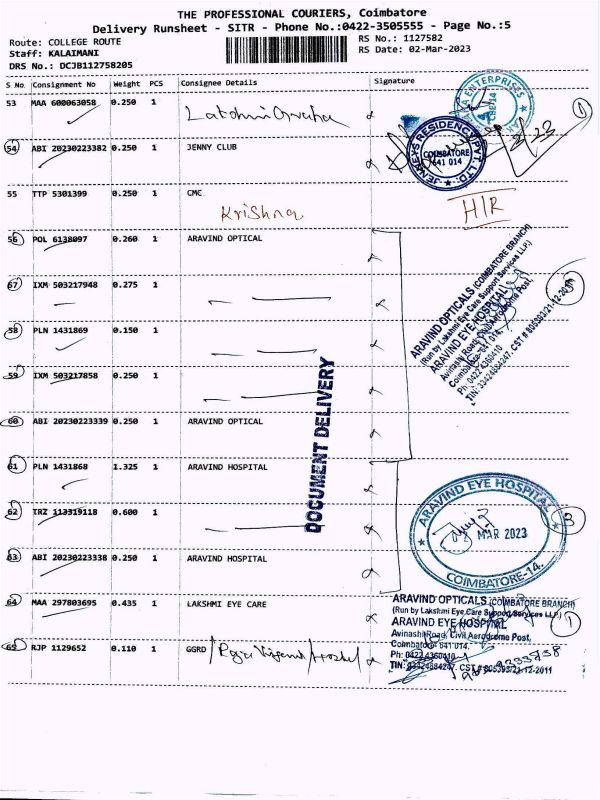 THE PROFESSIONAL COURIERS, Coimbatore
Delivery Runsheet - SITR - Phone No.:0422-3505555 - Page No.:5
Route: COLLEGE ROUTE
Staff: KALAIMANI
DRS No.: DCJB112758205
RS No.: 1127582
RS Date: 02-Mar-2023
S No. Consignment No Weight PCS Consignee Details Signature
53 MAA 600063058 0.250 1
54 ABI 20230223382 0.250 1 JENNY CLUB
55 TTP 5301399 0.250 1 CMC
Krishna H/R
56 POL 6138097 0.260 1 ARAVIND OPTICAL
57 IXM 503217948 0.275 1
58 PLN 1431869 0.150 1
59 IXM 503217858 0.250 1
60 ABI 20230223339 0.250 1 ARAVIND OPTICAL
61 PLN 1431868 1.325 1 ARAVIND HOSPITAL
62 TRZ 113319118 0.600 1
63 ABI 20230223338 0.250 1 ARAVIND HOSPITAL
64 MAA 297803695 0.435 1 LAKSHMI EYE CARE
65 RJP 1129652 0.110 1 GGRD
DOCUMENT DELIVERY
ENTERPRISES
JENNEYS RESIDENCY PVT. LTD.
COIMBATORE
641 014
ARAVIND OPTICALS (COIMBATORE BRANCH)
(Run by Lakshmi Eye Care Support Services LLP.)
ARAVIND EYE HOSPITAL
Avinashi Road, Civil Aerodrome Post,
Coimbatore - 641 014.
Ph: 0422 4360410
TIN: 33424884247. CST # 805393/21-12-2011
3
ARAVIND EYE HOSPITAL
MAR 2023
COIMBATORE-14.
ARAVIND OPTICALS (COIMBATORE BRANCH)
(Run by Lakshmi Eye Care Support Services LLP.)
ARAVIND EYE HOSPITAL
Avinashi Road, Civil Aerodrome Post,
Coimbatore - 641 014.
Ph: 0422 4360410
TIN: 33424884247. CST # 805393/21-12-2011
1